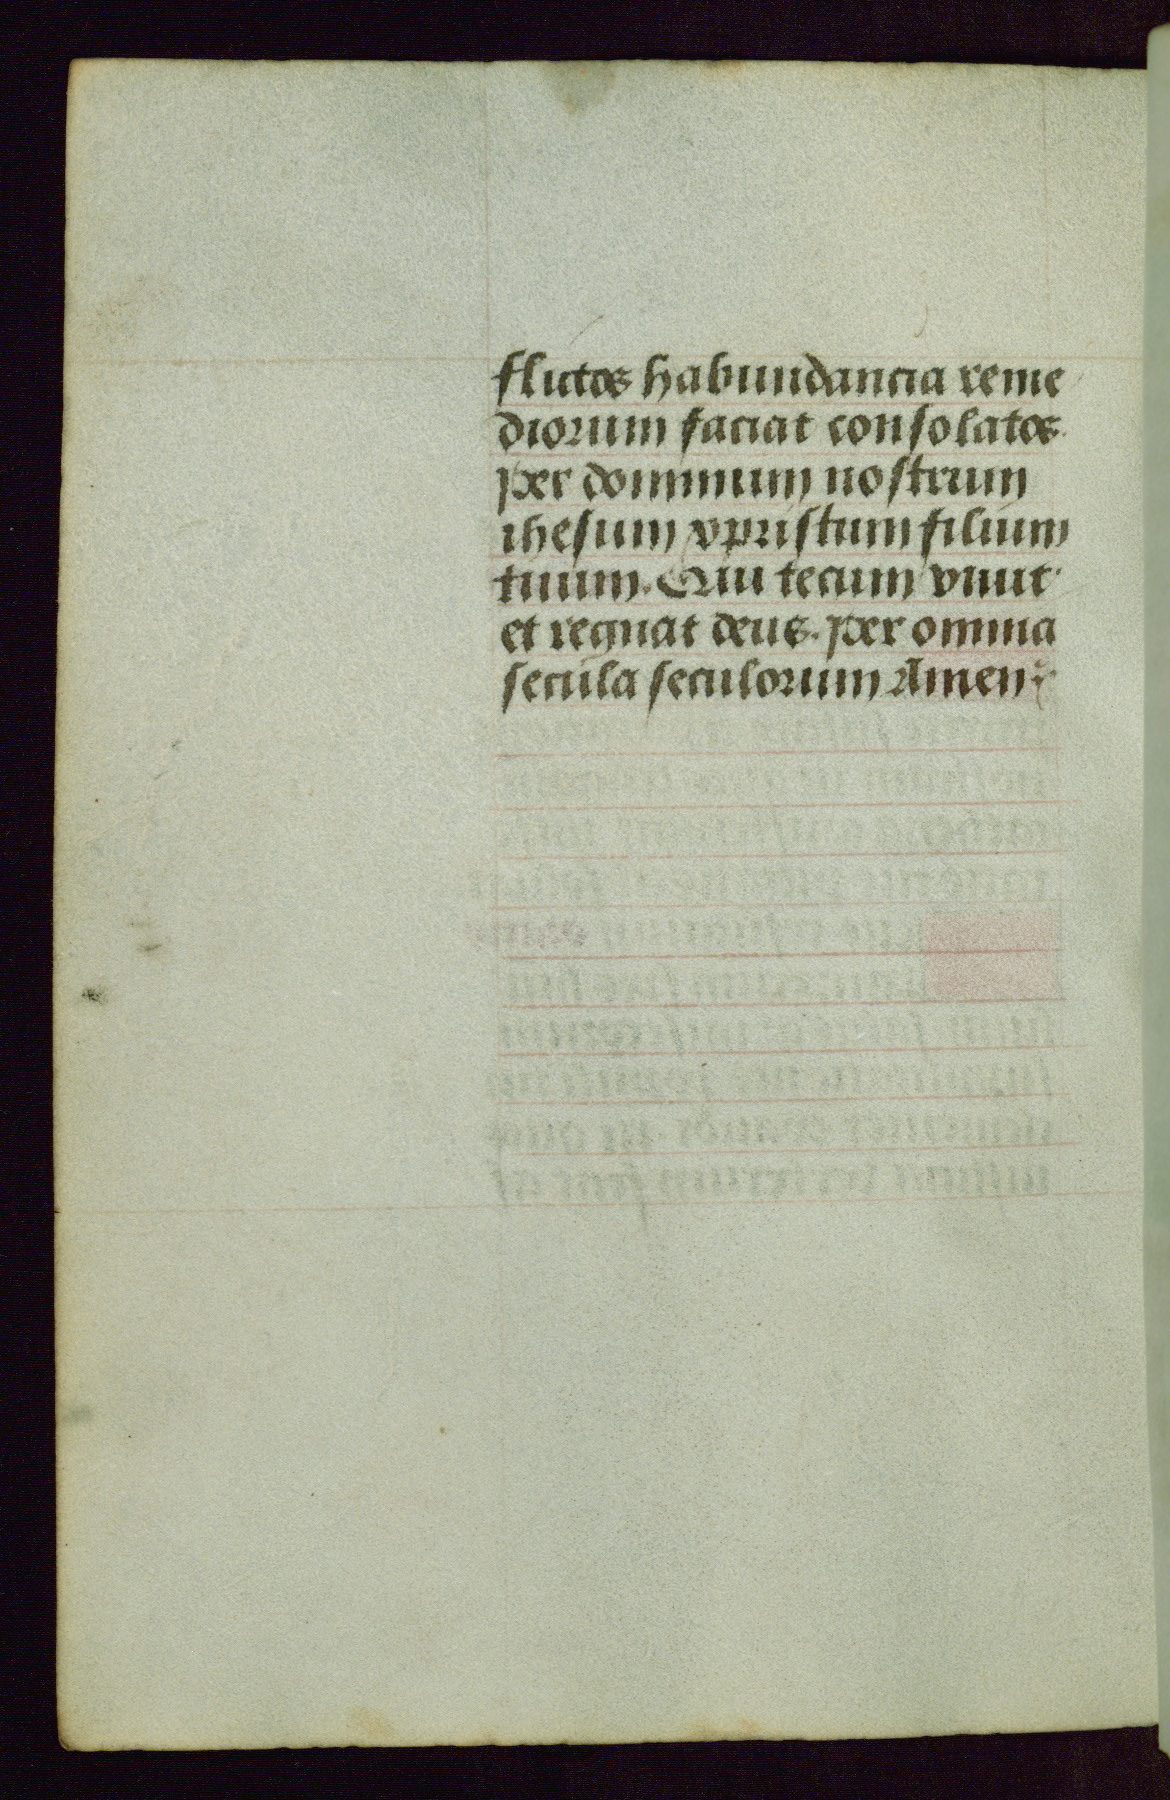 flictos habundancia reme
diorum faciat consolatos.
Per dominum nostrum
ihesum xpristum filium
tuum. Qui tecum viuit
et regnat deus. per omnia
secula seculorum Amen